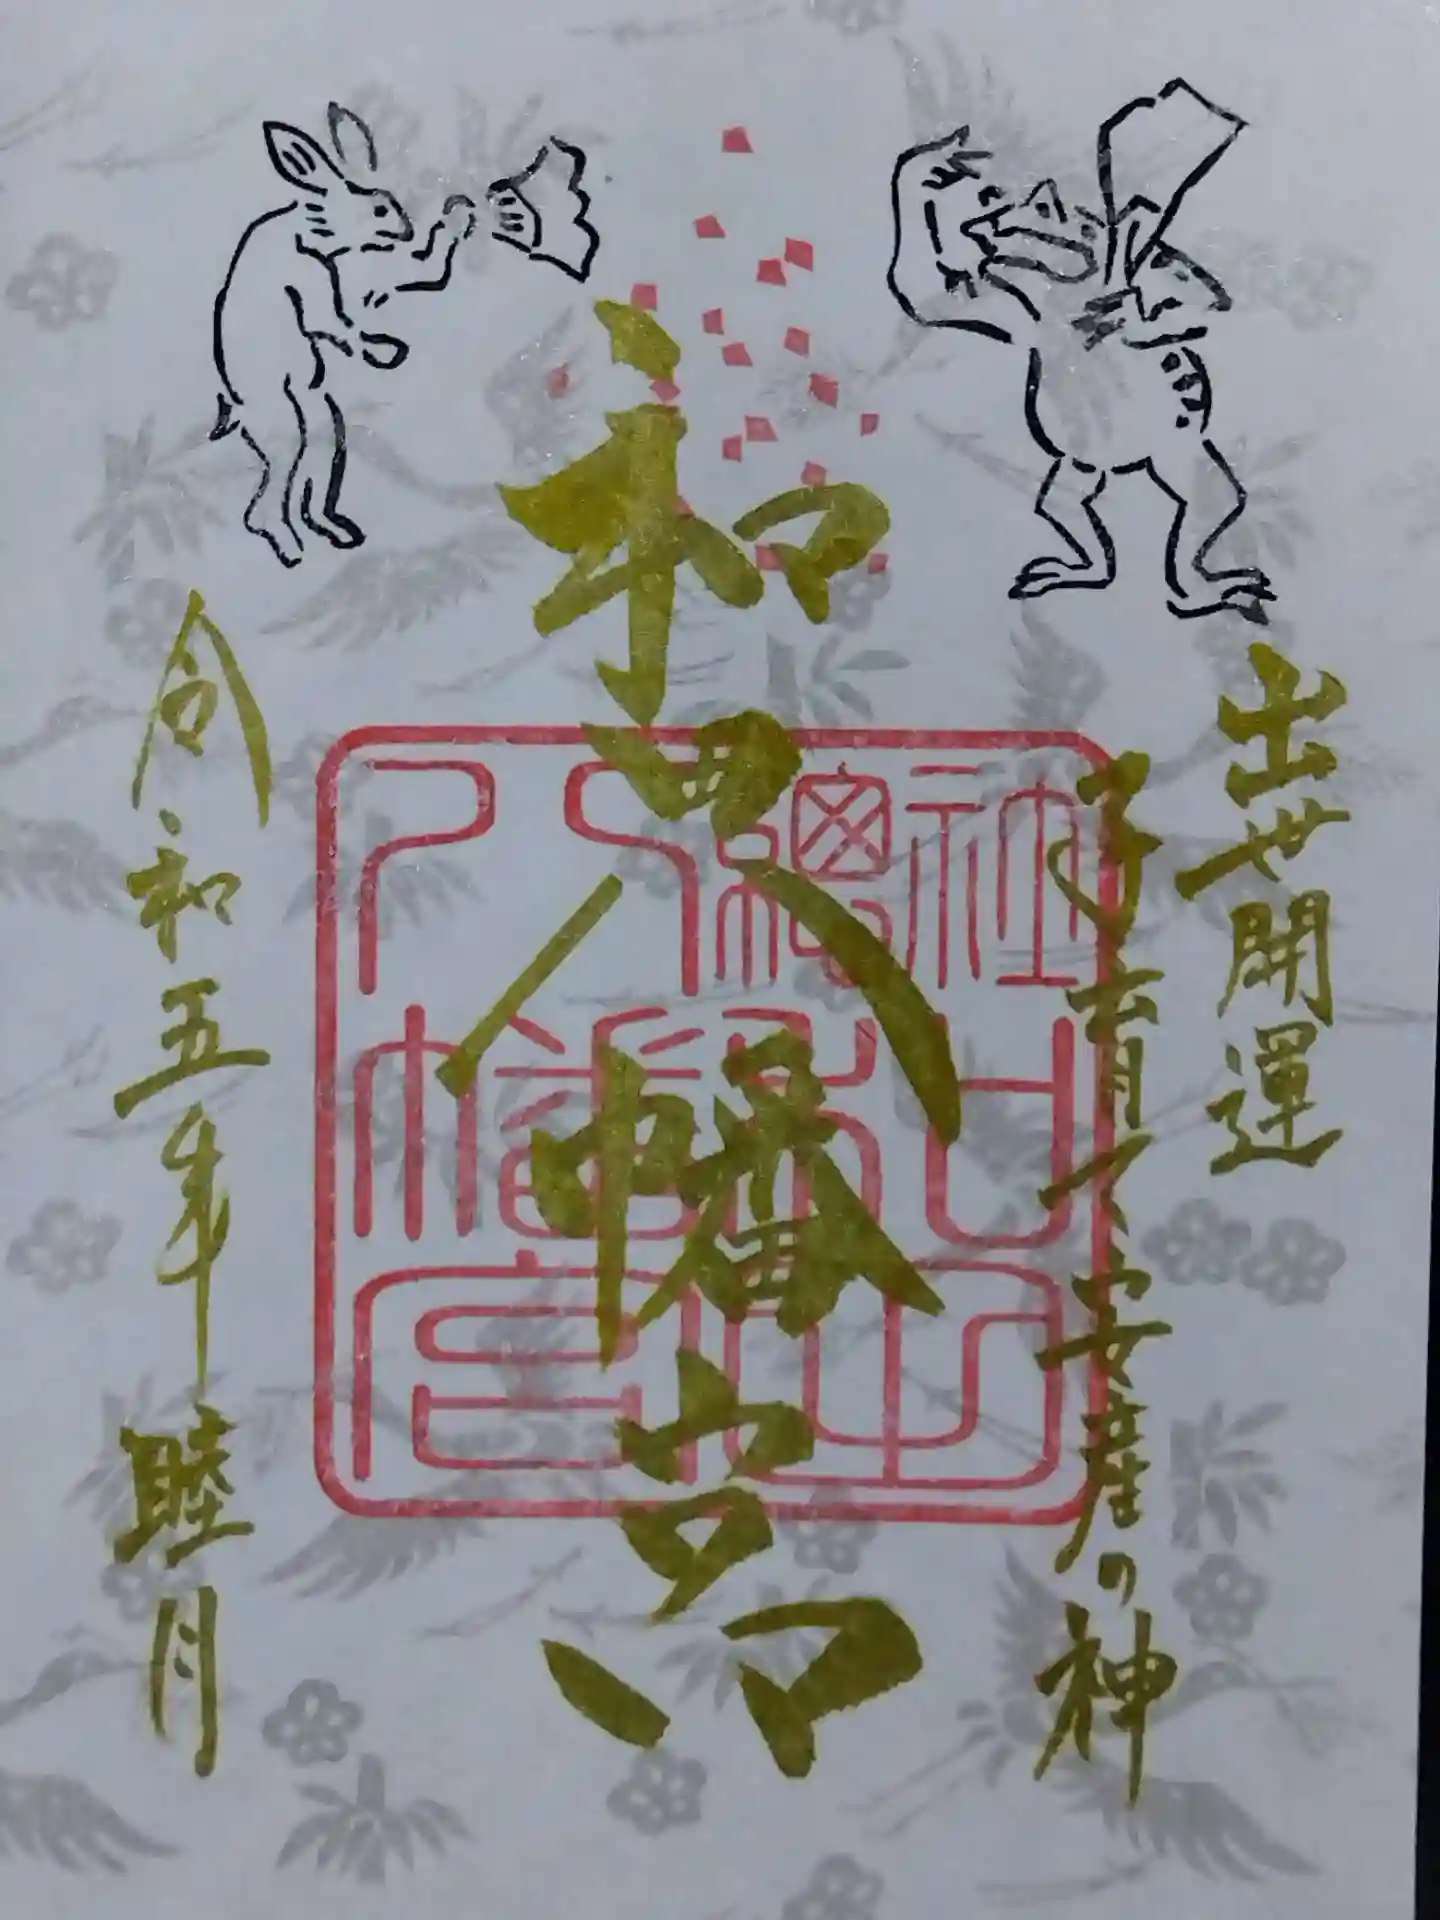 出世開運
子育て安産の神
和田八幡宮
總社
八幡宮
令和五年睦月